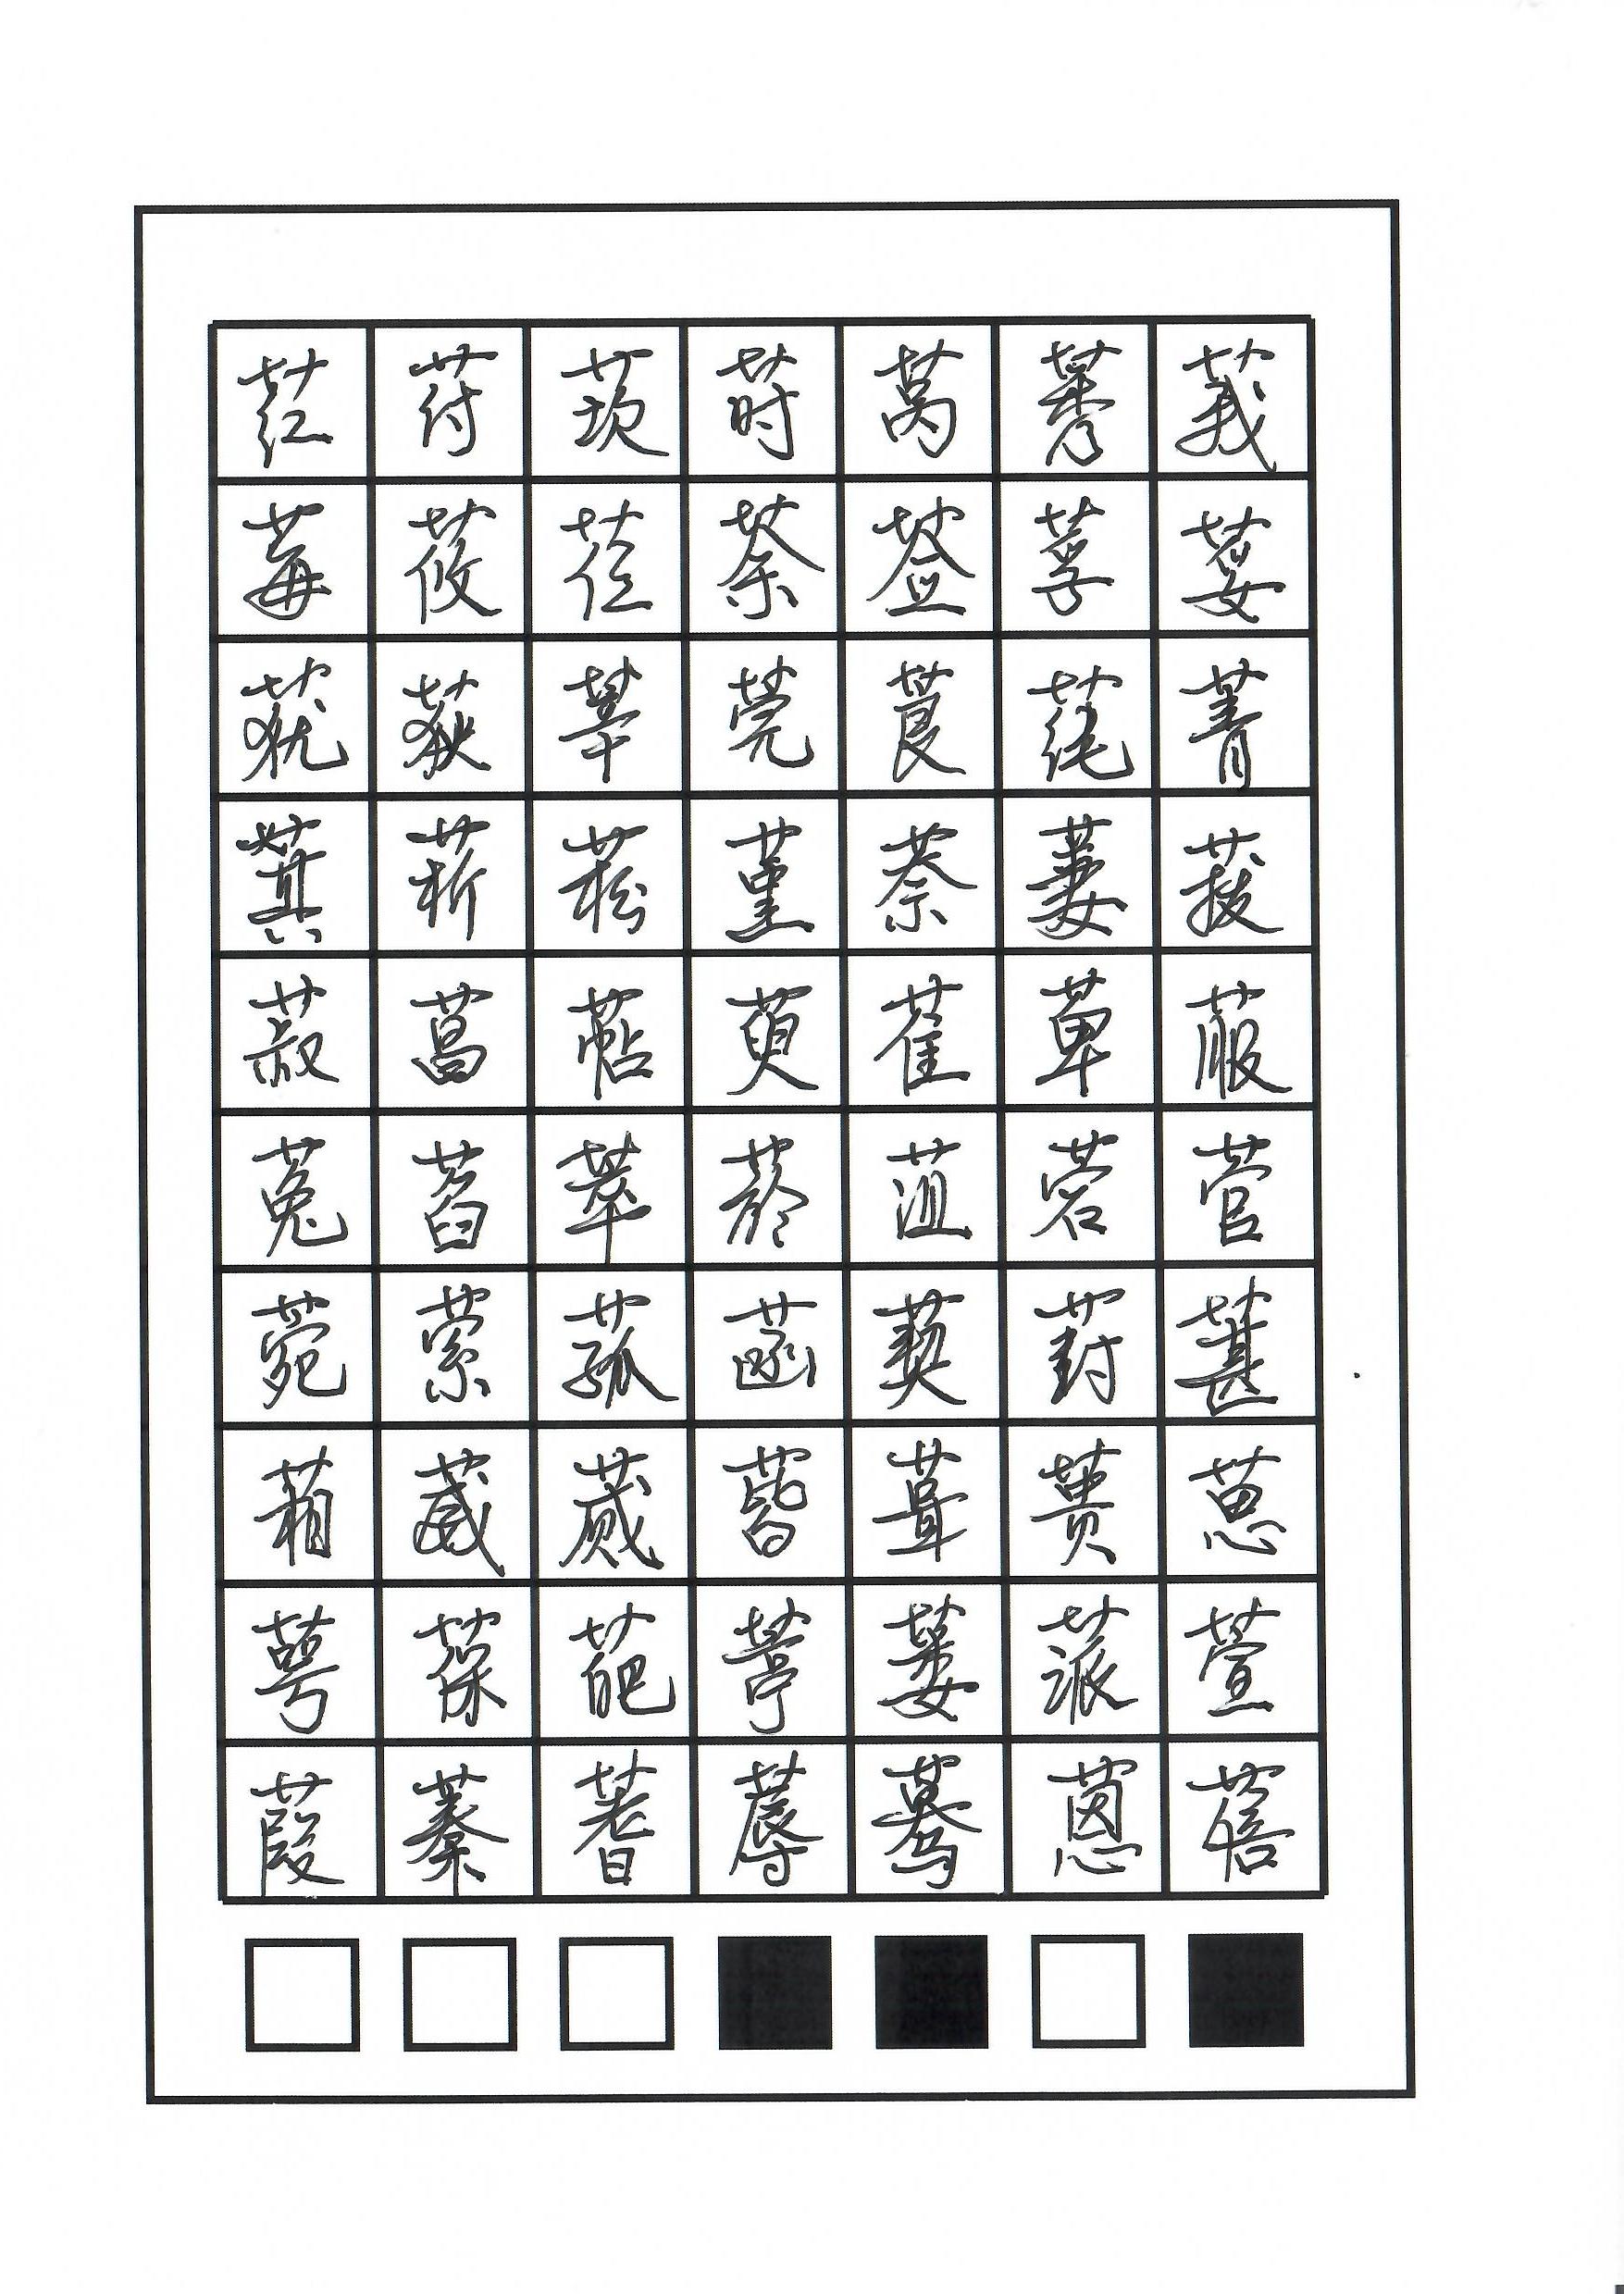 荭 荮 莰 莳 莴 莠 莪
莓 莜 莅 荼 莶 莩 荽
莸 荻 莘 莞 莨 莼 菁
萁 菥 菘 堇 萘 萋 菝
菽 菖 萜 萸 萑 萆 菔
菟 萏 萃 菸 菹 菪 菅
菀 萦 菰 菡 葜 葑 葚
葙 葳 蒇 蒈 葺 蒉 葸
萼 葆 葩 葶 蒌 蒎 萱
葭 蓁 蓍 蓐 蓦 蒽 蓓